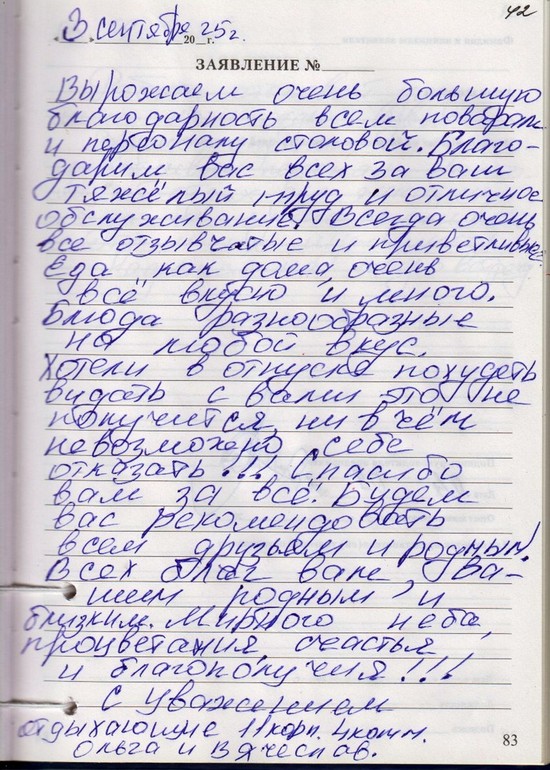 42
3 сентября 2025г.
ЗАЯВЛЕНИЕ №
Вырожаем очень большую
благодарность всем поварам
и персоналу столовой. Благо-
дарим вас всех за ваш
тяжёлый труд и отличное
обслуживание. Всегда очень
все отзывчатые и приветливые.
Еда как дома, очень
всё вкусно и много.
Блюда разнообразные
на любой вкус.
Хотели в отпуске похудеть
видать с вами это не
получится, ни в чём
невозможно себе
отказать!!! Спасибо
вам за всё! Будем
вас рекомендовать
всем друзьям и родным!
Всех благ вам, Ва-
шим родным и
близким. Мирного неба,
процветания, счастья
и благополучия!!!
С уважением
отдыхающие 11 корп. 4 комн.
Ольга и Вячеслав.
83